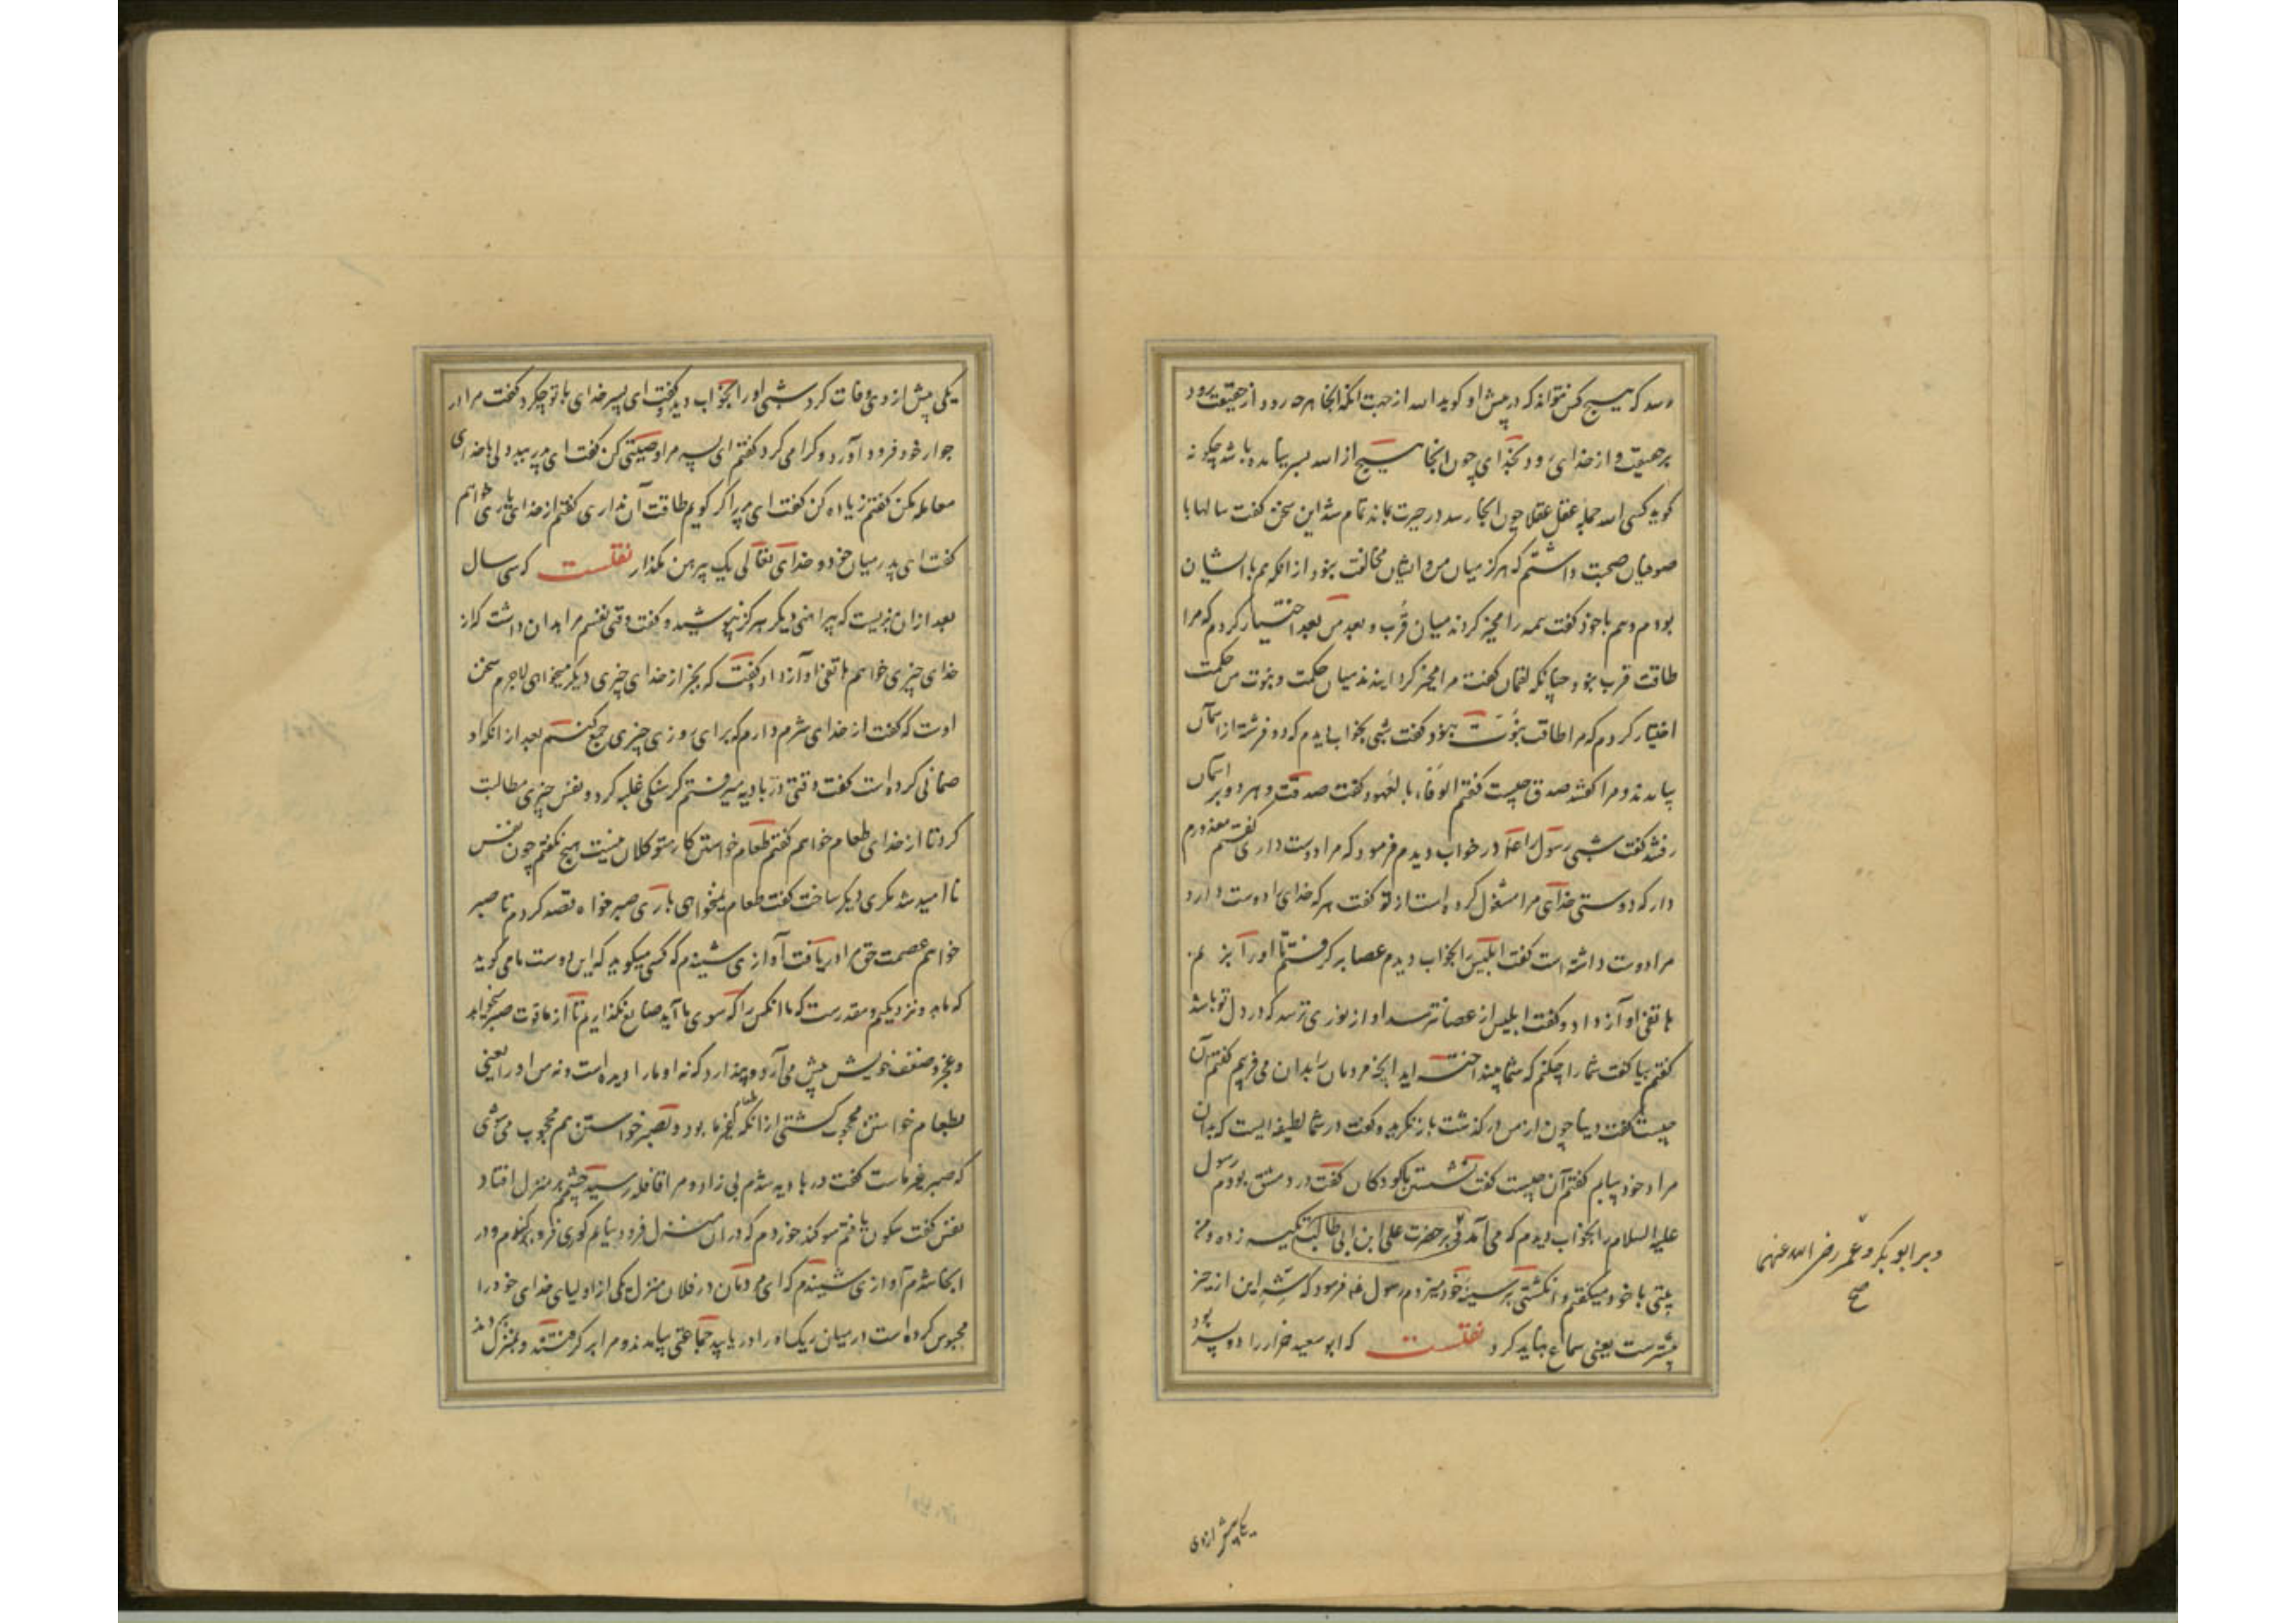 رسد که هیچ کس نتواند که در پیش او گوید الله از جهت آنکه آنجا هرچه رود از حقیقت رود
بر حقیقت و از خدای رود بخدای چون آنجا هیچ از الله بسر نیامده باشد چگونه
گوید کسی الله جمله عقل عقلا چون آنجا رسد در حیرت بماند تمام شد این سخن گفت سالها با
صوفیان صحبت داشتم که هرگز میان من و ایشان مخالفت نبود از آنکه هم با ایشان
بودم و هم با خود گفت همه را مخیر کردند میان قرب و بعد من بعد اختیار کردم که مرا
طاقت قرب نبود چنانکه لقمان گفت مرا مخیر کردانیدند میان حکمت و نبوت من حکمت
اختیار کردم که مرا طاقت نبوت نبود گفت شبی بخواب دیدم که دو فرشته از آسمان
بیامدند و مرا گفتند صدق چیست گفتم الوفاء بالعهود گفت صدقت و هر دو بر آسمان
رفتند گفت شبی رسول را در خواب دیدم فرمود که مرا دوست داری گفتم معذورم
دار که دوستی خدای مرا مشغول کرده است از تو گفت هر که خدای را دوست دارد
مرا دوست داشته است گفت ابلیس را بخواب دیدم عصا بر گرفتم تا او را بزنم
هاتفی آواز داد و گفت ابلیس از عصا نترسد او از نوری ترسد که در دل تو باشد
گفتم بیا گفت شما را چکنم که شما بینداخته اید آنچه مردمان را بدان می فریبم گفتم آن
چیست گفت دنیا چون از من در گذشت باز نگرید و گفت در شما لطیفه ایست که بدان
مراد خود بیابم گفتم آن چیست گفت نشستن با کودکان گفت در دمشق بودم رسول
علیه السلام را بخواب دیدم که می آمد و بر حضرت علی ابن ابی طالب تکیه زده و من
بیتی با خود میگفتم و انگشتی بر سینه خود میزدم رسول فرمود که شر این از خیر
بیشترست یعنی سماع نباید کرد نقلست که ابو سعید خراز را دو پسر بود
و بر ابو بکر و عمر رضی الله عنهما
صح
یکی پیش از وی
یکی پیش از وی وفات کرد شبی او را بخواب دید گفت ای پسر خدای با تو چکرد گفت مرا در
جوار خود فرود آورد و گرامی کرد گفتم ای پسر مرا وصیتی کن گفت ای پدر ببددلی با خدای
معامله مکن گفتم زیاده کن گفت ای پدر اگر گویم طاقت آن نداری گفتم از خدای یاری خواهم
گفت ای پدر میان خود و خدای تعالی یک پیرهن مگذار نقلست که سی سال
بعد از آن بزیست که پیراهنی دیگر هرگز نپوشید و گفت وقتی نفسم مرا بدان داشت که از
خدای چیزی خواهم هاتفی آواز داد و گفت که بجز از خدای چیزی دیگر میخواهی لاجرم سخن
اوست که گفت از خدای شرم دارم که برای روزی چیزی جمع کنم بعد از آنکه او
ضمانی کرده است گفت وقتی در بادیه میرفتم گرسنگی غلبه کرد و نفس چیزی مطالبت
کرد تا از خدای طعام خواهم گفتم طعام خواستن کار متوکلان نیست هیچ نگفتم چون نفس
نا امید شد مکری دیگر ساخت گفت طعام نمیخواهی باری صبر خواه قصد کردم تا صبر
خواهم عصمت حق مرا دریافت آوازی شنیدم که کسی میگوید که این دوست ما می گوید
که ما بدو نزدیکیم و مقدرست که ما آنکس را که سوی ما آید ضایع نگذاریم تا از ما قوت صبر میخواهد
و عجز و ضعف خویش پیش می آرد و پندارد که نه او ما را دیده است و نه من او را یعنی
بطعام خواستن محجوب گشتی از آنکه طعام غیر ما بود و بصبر خواستن هم محجوب می شوی
که صبر غیر ماست گفت در بادیه شدم بی زاد و مرا فاقه رسید چشمم بر منزل افتاد
نفس گفت سکون یافتم سوگند خوردم که در آن منزل فرود نیایم گوری فرو بکندم و در
آنجا شدم آوازی شنیدم که ای مردمان در فلان منزل یکی از اولیای خدای خود را
محبوس کرده است در میان ریگ او را دریابید جماعتی بیامدند و مرا برگرفتند و بمنزل بردند